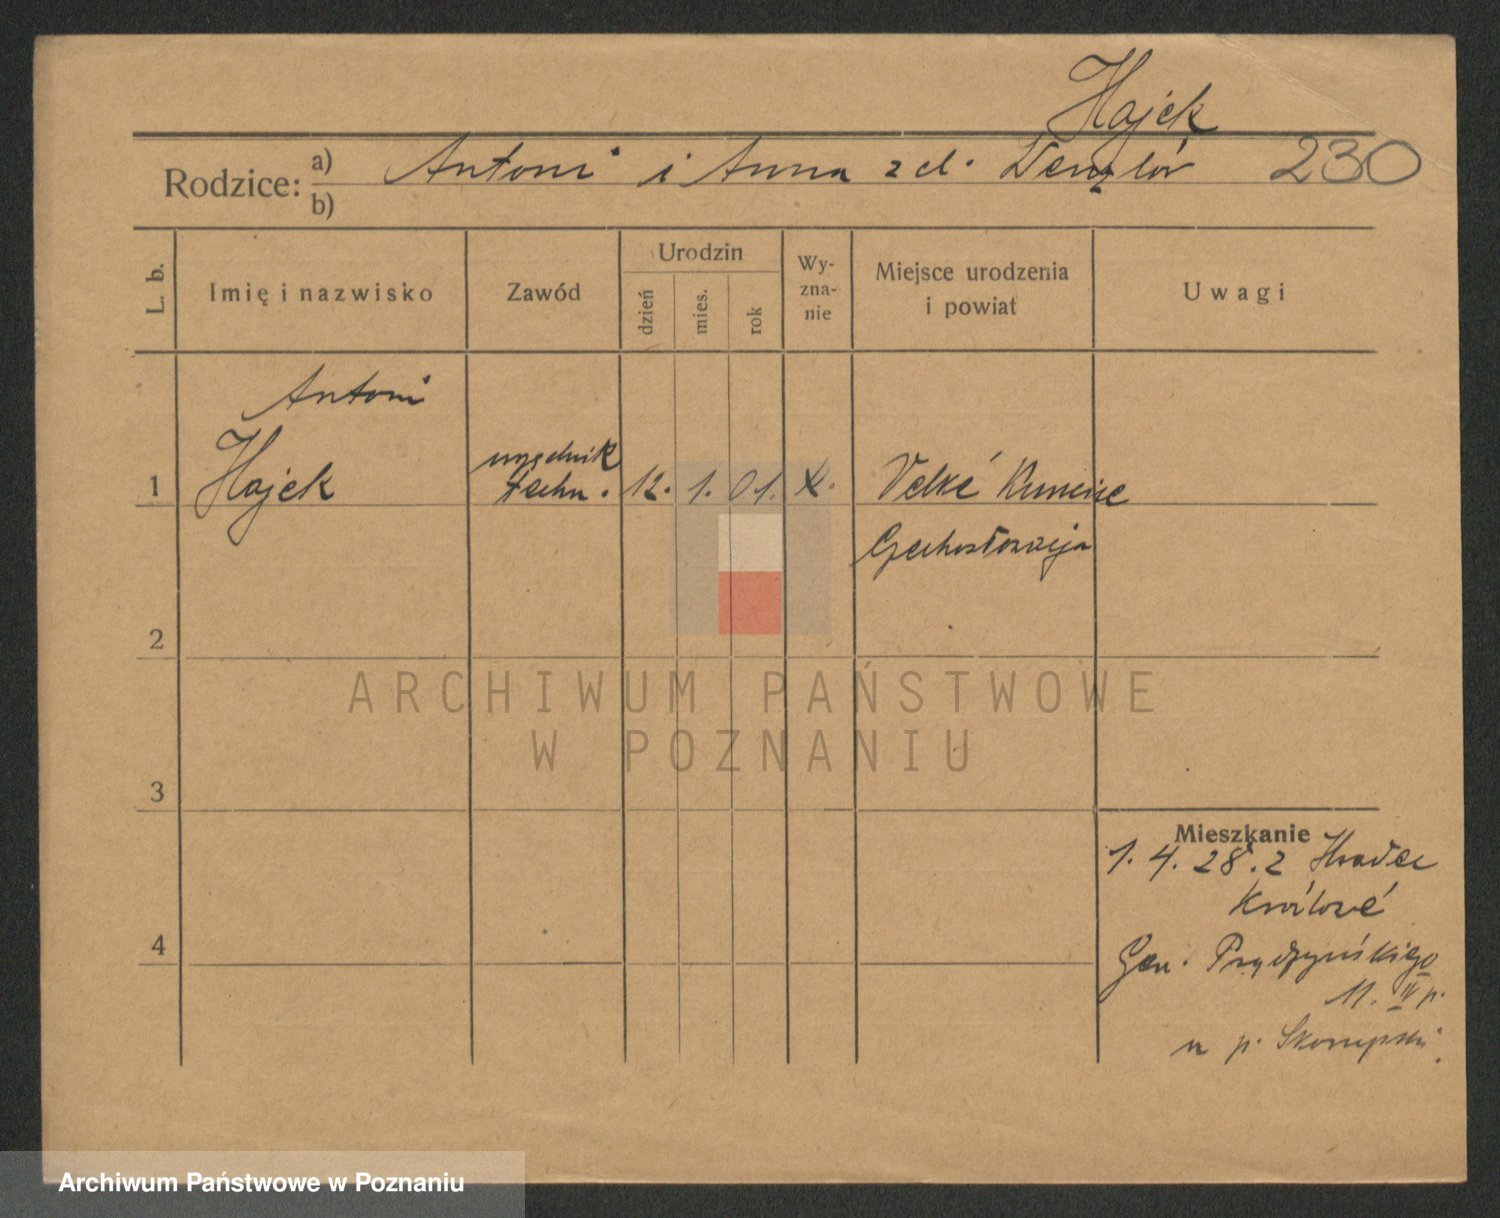 Hajek
Rodzice: a) Antoni i Anna z d. 230
b)
L. b.
Imię i nazwisko
Zawód
Urodzin
dzień
mies.
rok
Wy-
zna-
nie
Miejsce urodzenia
i powiat
Uwagi
Antoni
1 Hajek
urzędnik
techn. 12. 1. 01. Velké
Czechosłowacja
2
3
4
Mieszkanie
1. 4. 28. z Hradec
Králové
Gen. Prądzyńskiego
11. IV p.
u p. Skorupski
ARCHIWUM PAŃSTWOWE
W POZNANIU
Archiwum Państwowe w Poznaniu